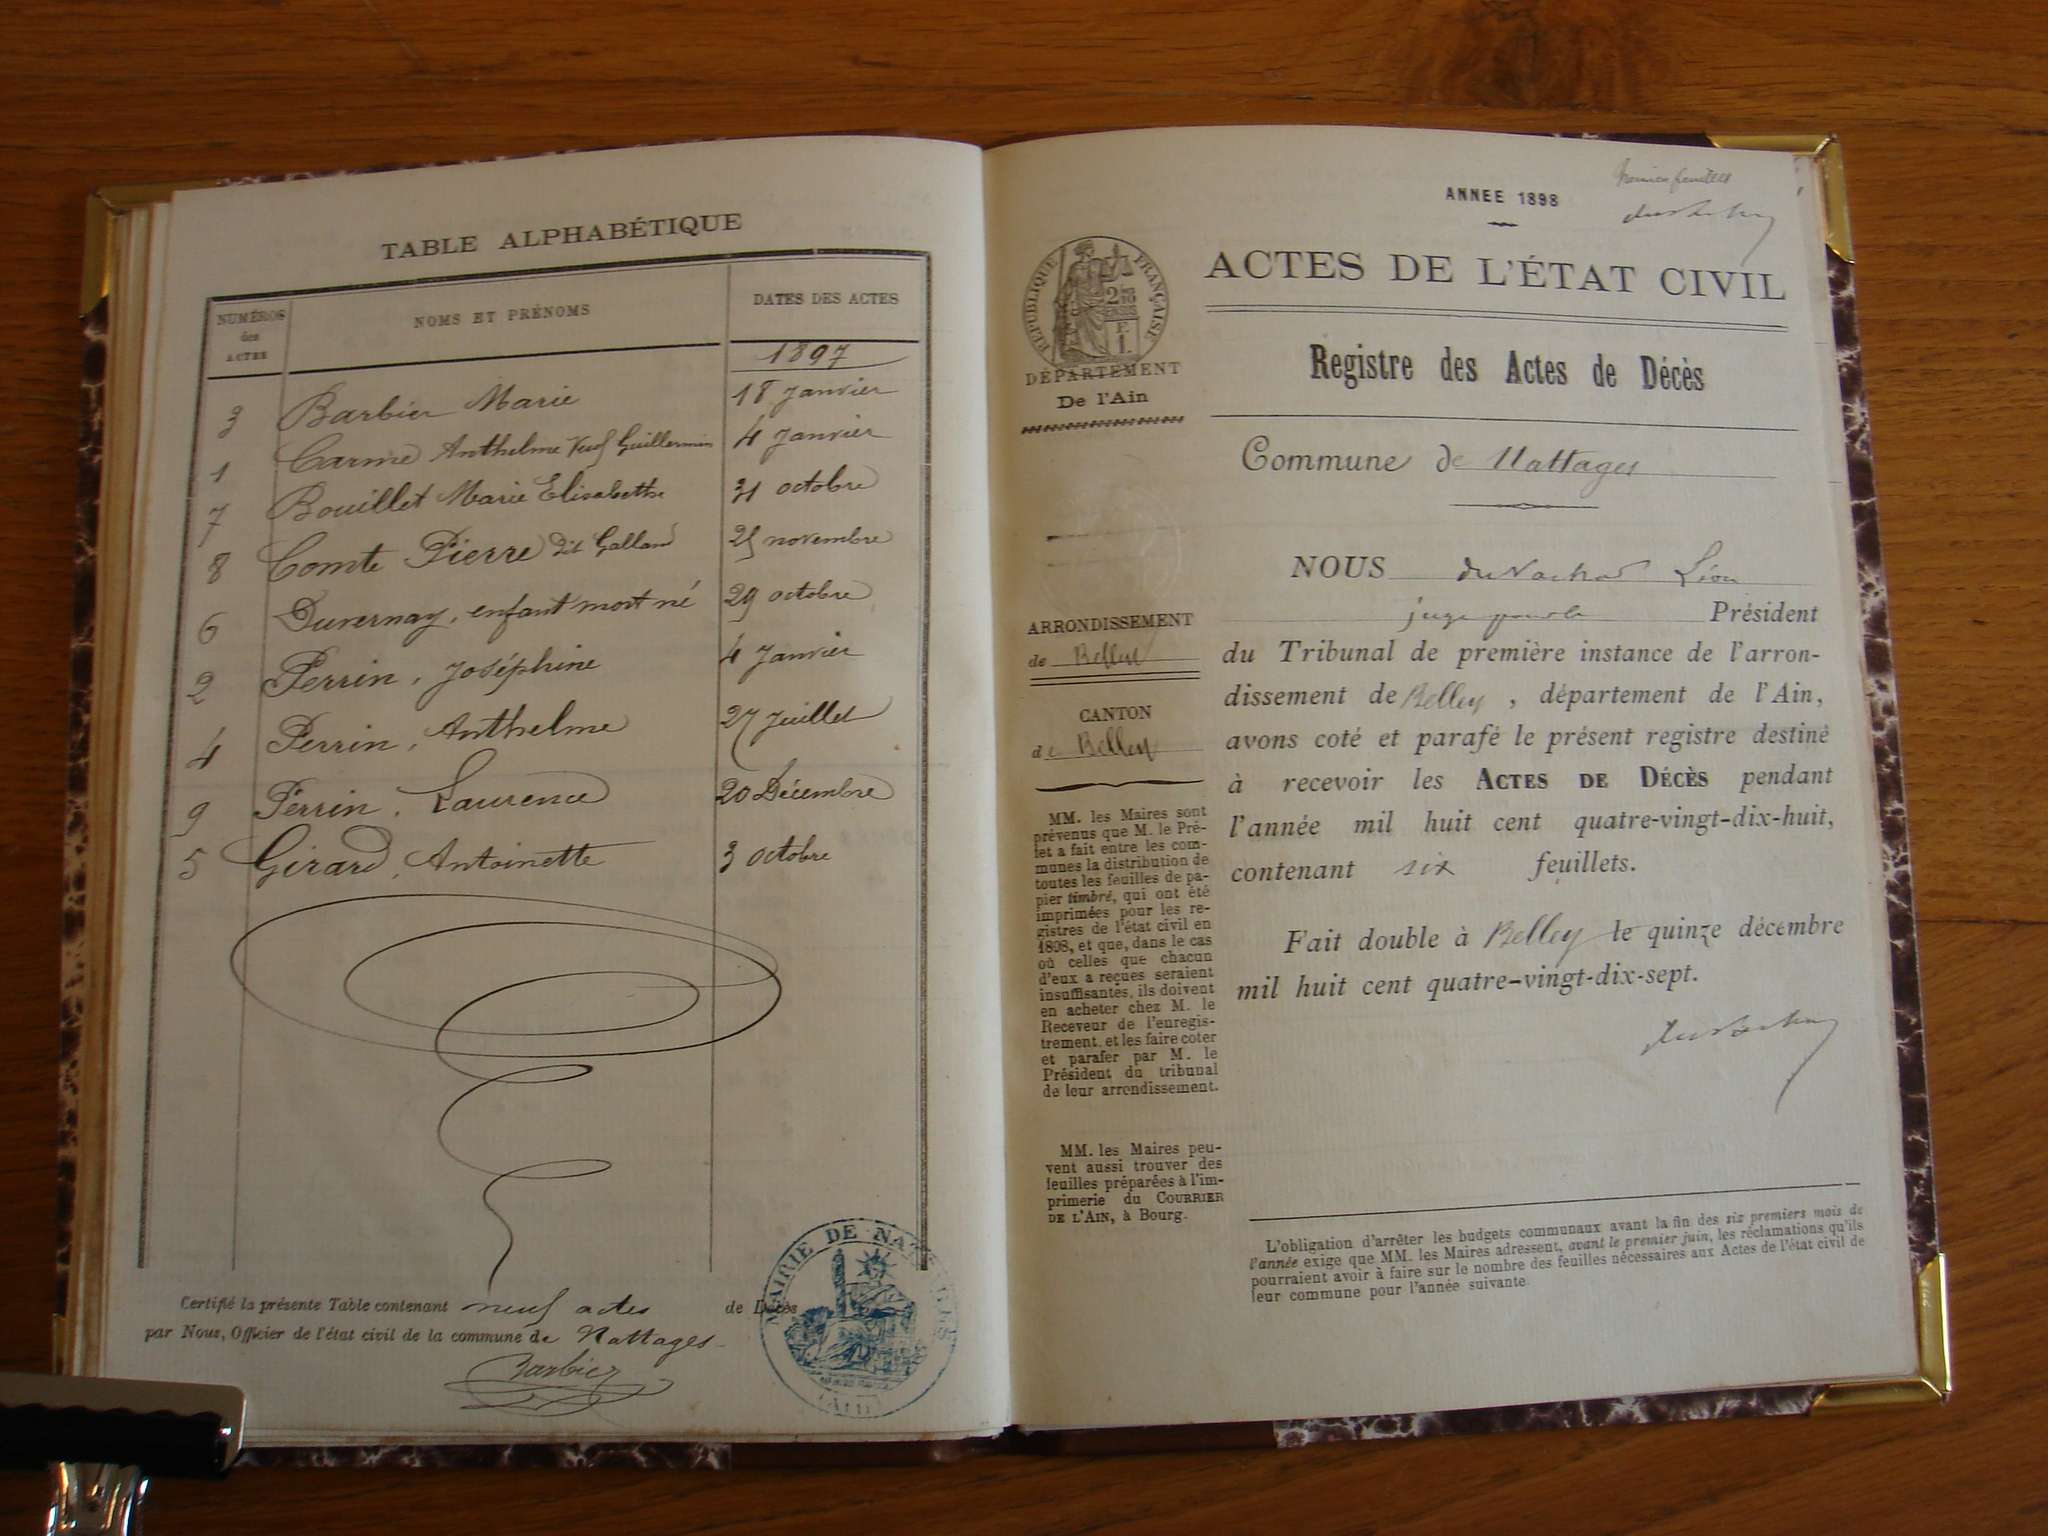 TABLE ALPHABÉTIQUE
NUMÉROS des ACTES
NOMS ET PRÉNOMS
DATES DES ACTES
1897
3 Barbier Marie 18 Janvier
1 Carme Anthelme Veuf Guillermin 4 Janvier
7 Bouillet Marie Elisabethe 31 octobre
8 Comte Pierre dit Galland 25 novembre
6 Duvernay, enfant mort né 29 octobre
2 Perrin, Joséphine 4 Janvier
4 Perrin, Anthelme 27 Juillet
9 Perrin, Laurence 20 Décembre
5 Girard, Antoinette 3 octobre
Certifié la présente Table contenant neuf actes de Décès
par Nous, Officier de l'état civil de la commune de Nattages
Barbier
MAIRIE DE NATTAGES
(AIN)
ANNEE 1898
RÉPUBLIQUE FRANÇAISE
DÉPARTEMENT
De l'Ain
ACTES DE L'ÉTAT CIVIL
Registre des Actes de Décès
Commune de Nattages
ARRONDISSEMENT
de Belley
CANTON
de Belley
MM. les Maires sont
prévenus que M. le Pré-
fet a fait entre les com-
munes la distribution de
toutes les feuilles de pa-
pier timbré, qui ont été
imprimées pour les re-
gistres de l'état civil en
1898, et que, dans le cas
où celles que chacun
d'eux a reçues seraient
insuffisantes, ils doivent
en acheter chez M. le
Receveur de l'enregis-
trement, et les faire coter
et parafer par M. le
Président du tribunal
de leur arrondissement.
MM. les Maires peu-
vent aussi trouver des
feuilles préparées à l'im-
primerie du COURRIER
DE L'AIN, à Bourg.
NOUS Léon
juge Président
du Tribunal de première instance de l'arron-
dissement de Belley, département de l'Ain,
avons coté et parafé le présent registre destiné
à recevoir les ACTES DE DÉCÈS pendant
l'année mil huit cent quatre-vingt-dix-huit,
contenant six feuillets.
Fait double à Belley le quinze décembre
mil huit cent quatre-vingt-dix-sept.
L'obligation d'arrêter les budgets communaux avant la fin des six premiers mois de
l'année exige que MM. les Maires adressent, avant le premier juin, les réclamations qu'ils
pourraient avoir à faire sur le nombre des feuilles nécessaires aux Actes de l'état civil de
leur commune pour l'année suivante.